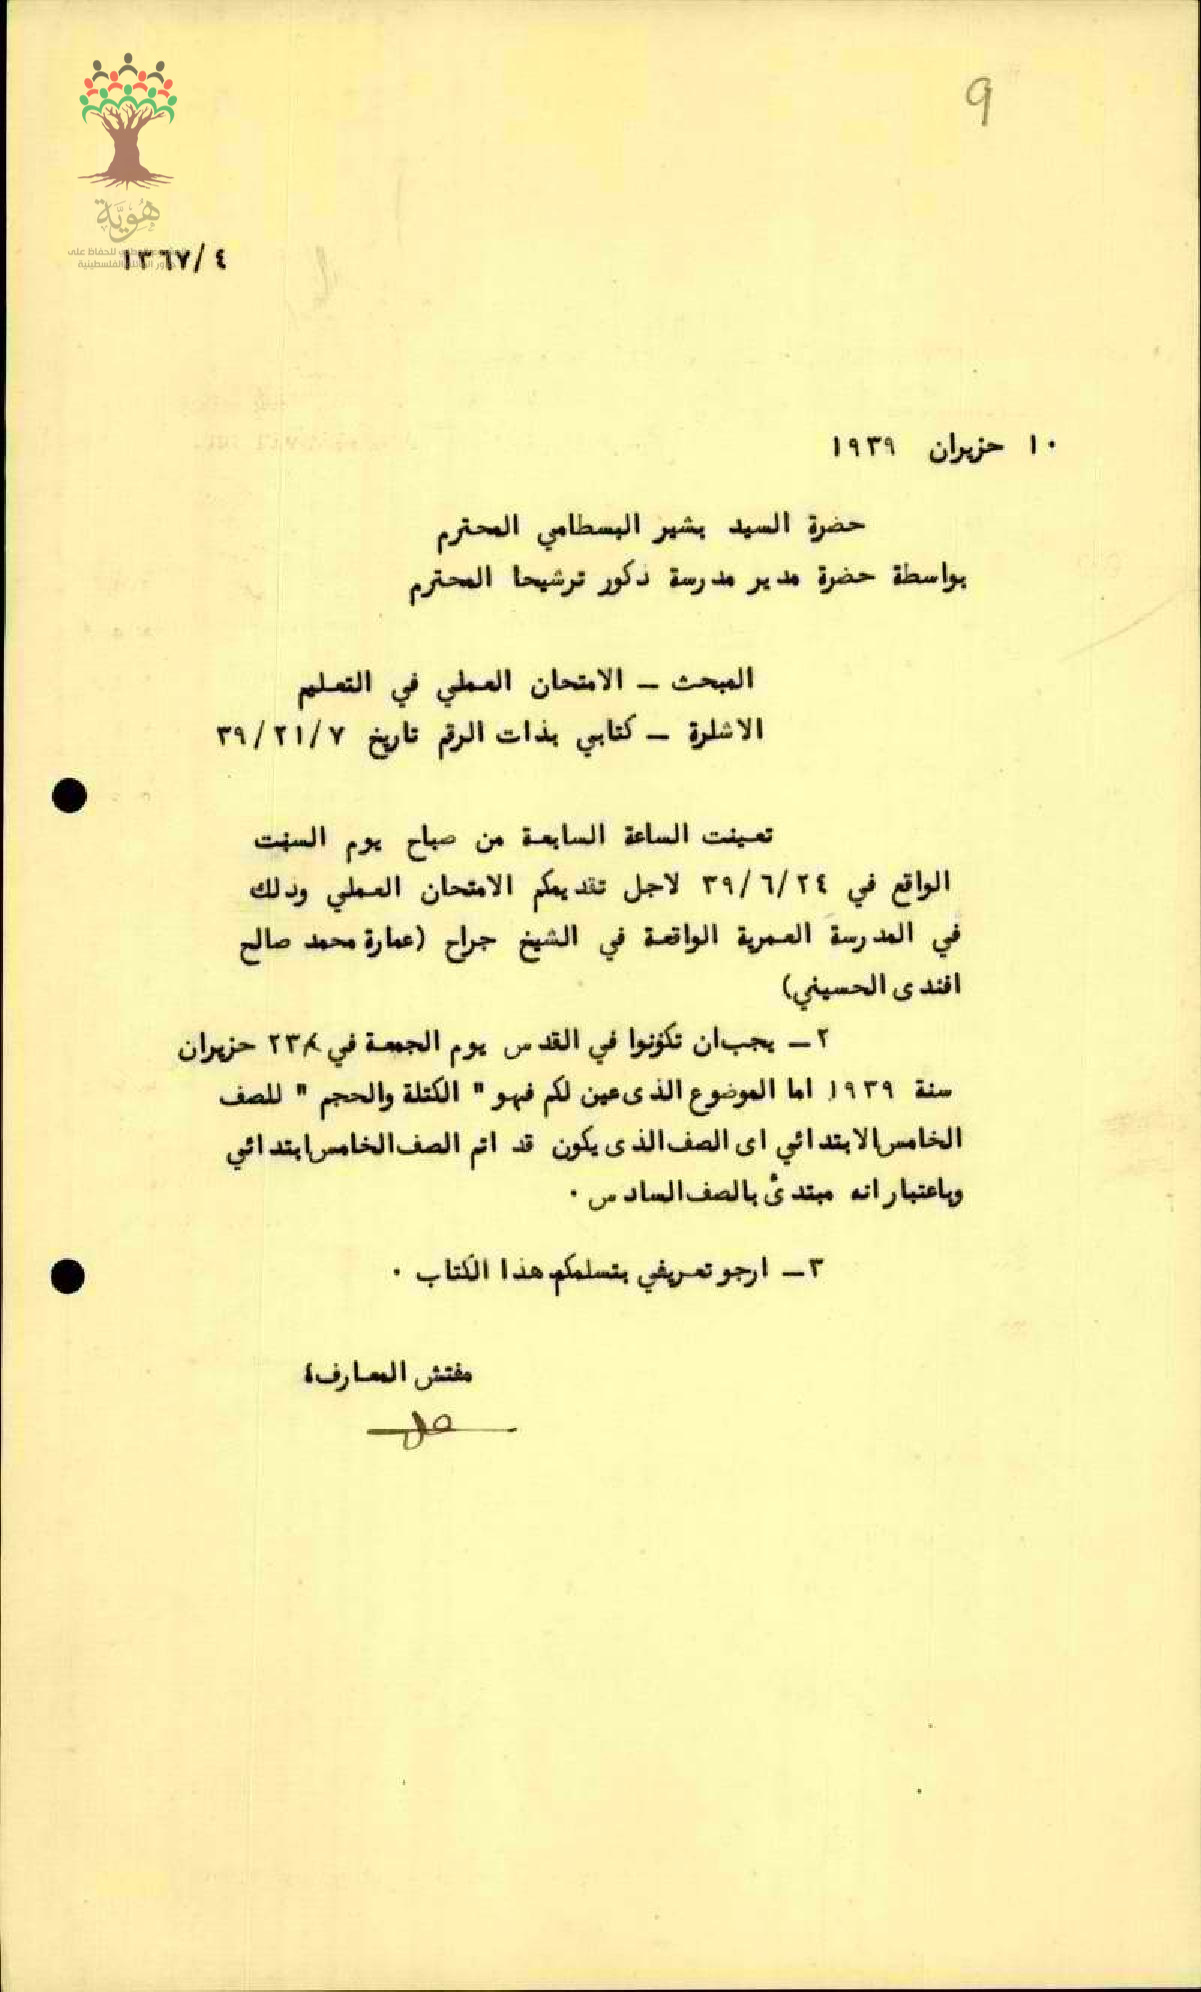 9
هُوِيَّة
١٣٦٧/٤
١٠ حزيران ١٩٣٩
حضرة السيد بشير البسطامي المحترم
بواسطة حضرة مدير مدرسة ذكور ترشيحا المحترم
المبحث – الامتحان العملي في التعليم
الاشارة – كتابي بذات الرقم تاريخ ٣٩/٢١/٧
تعينت الساعة السابعة من صباح يوم السبت
الواقع في ٣٩/٦/٢٤ لاجل تقديمكم الامتحان العملي وذلك
في المدرسة العمرية الواقعة في الشيخ جراح (عمارة محمد صالح
افندى الحسيني)
٢ – يجب ان تكونوا في القدس يوم الجمعة في ٢٣ حزيران
سنة ١٩٣٩ اما الموضوع الذى عين لكم فهو " الكتلة والحجم " للصف
الخامس الابتدائي اى الصف الذى يكون قد اتم الصف الخامس ابتدائي
وباعتبار انه مبتدئ بالصف السادس ٠
٣ – ارجو تعريفي بتسلمكم هذا الكتاب ٠
مفتش المعارف